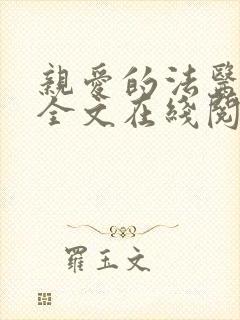 親愛的法醫
全文在綫閱
羅玉文